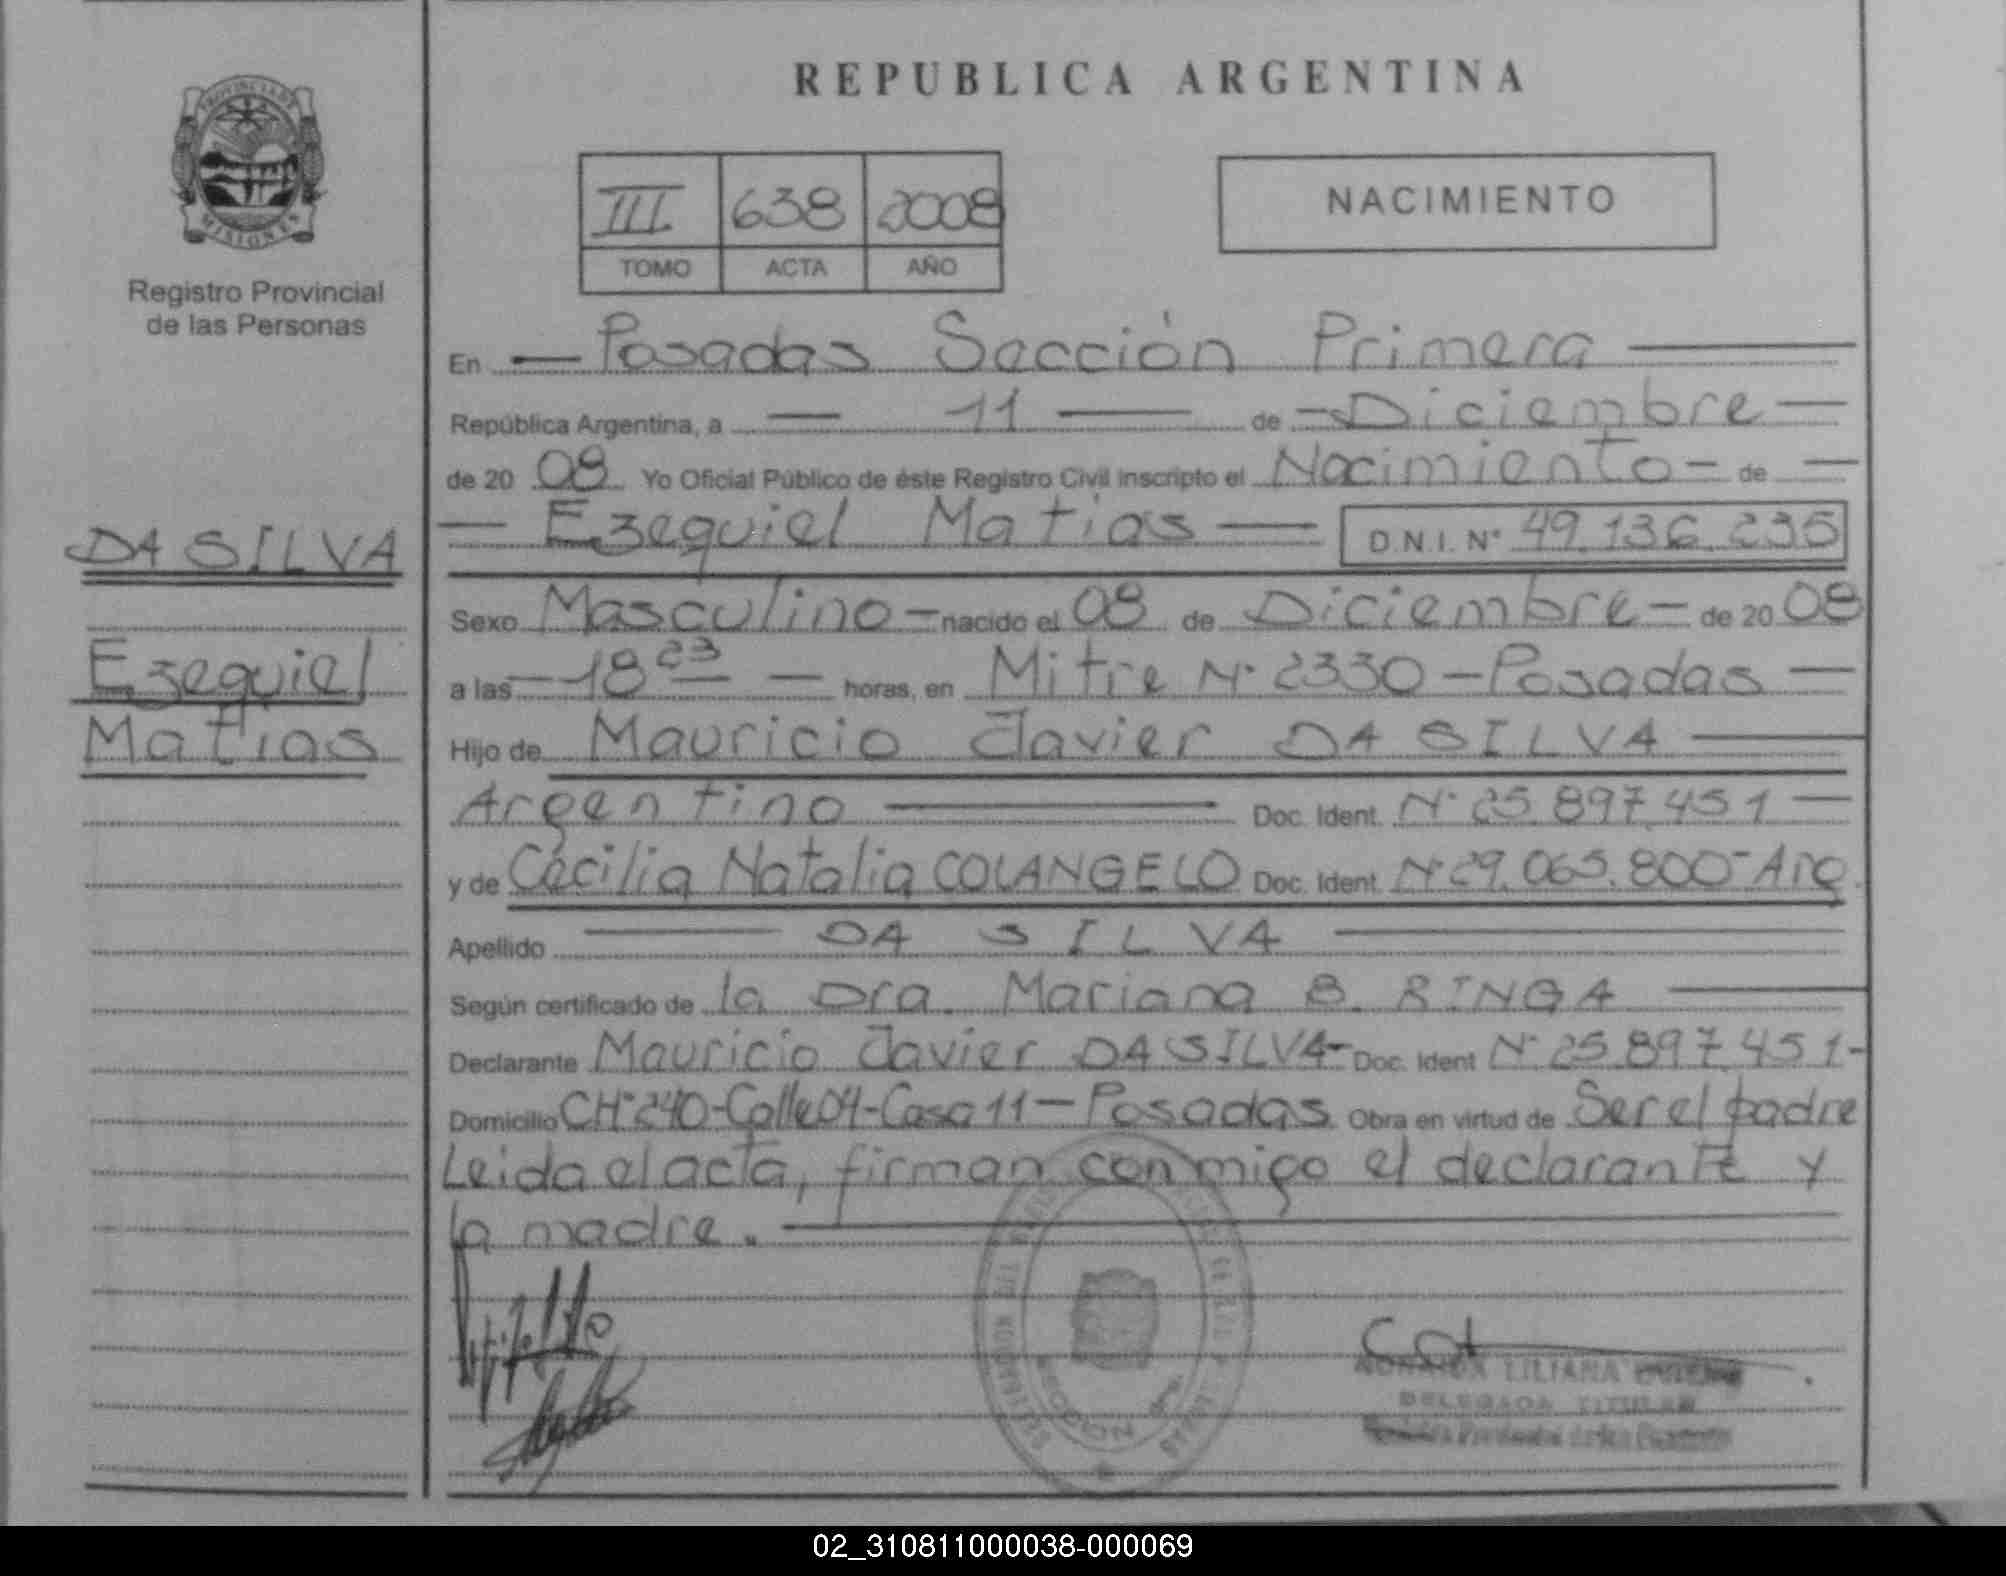 REPUBLICA ARGENTINA
PROVINCIA DE
MISIONES
Registro Provincial
de las Personas
III 638 2008
TOMO ACTA AÑO
NACIMIENTO
DA SILVA
Ezequiel
Matias
En Posadas Sección Primera
República Argentina, a 11 de Diciembre
de 20 08 Yo Oficial Público de éste Registro Civil inscripto el Nacimiento de
Ezequiel Matias D.N.I. N° 49.136.235
Sexo Masculino nacido el 08 de Diciembre de 20 08
a las 18 23 horas, en Mitre N° 2330 - Posadas
Hijo de Mauricio Javier DA SILVA
Argentino Doc. Ident. N° 25.897.451
y de Cecilia Natalia COLANGELO Doc. Ident. N° 29.065.800 - Arg.
Apellido DA SILVA
Según certificado de la Dra. Mariana B. RINGA
Declarante Mauricio Javier DA SILVA - Doc. Ident N° 25.897.451-
Domicilio CH°240-Calle04-Casa 11 - Posadas Obra en virtud de Ser el padre
Leida el acta, firman conmigo el declarante y
la madre.
LILIANA
DELEGADA TITULAR
02_310811000038-000069